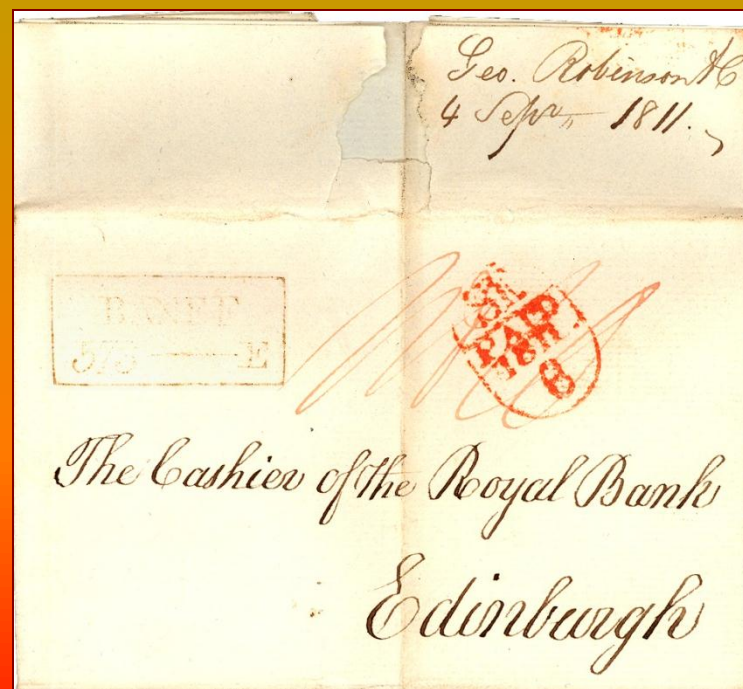 Geo. Robinson & C
4 Sepr 1811.
BANFF
575 E
PAID
1811
8
The Cashier of the Royal Bank
Edinburgh